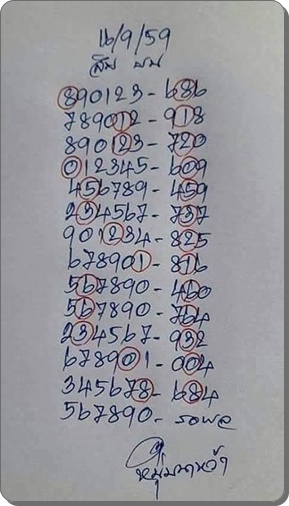 16/9/59
สิบ บน
890123 - 686
789012 - 918
890123 - 720
012345 - 609
456789 - 459
234567 - 737
901234 - 825
678901 - 816
567890 - 460
567890 - 764
234567 - 932
678901 - 004
345678 - 684
567890 - รอผล